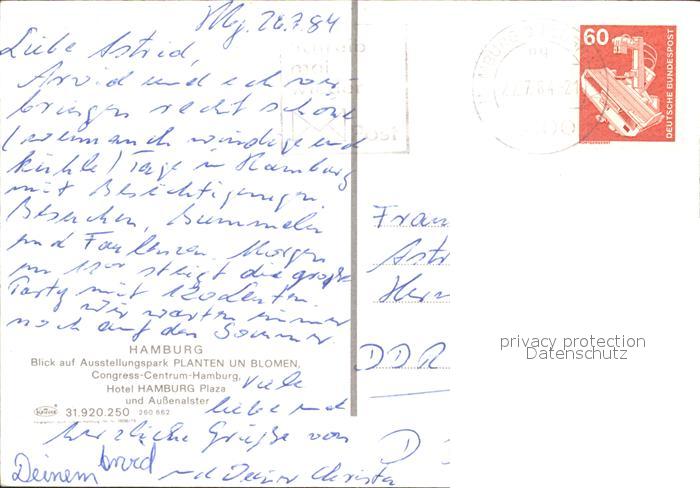 Hbg. 22.7.84
Liebe Astrid,
Arvid und ich ver-
bringen recht schöne
(wenn auch windige und
kühle) Tage in Hamburg
mit Besichtigungen,
Besuchen, Bummeln
und Faulenzen. Morgen
um steigt die große
Party mit 120 Leuten.
Wir warten immer
noch auf den Sommer.
HAMBURG
Blick auf Ausstellungspark PLANTEN UN BLOMEN,
Congress-Centrum-Hamburg,
Hotel HAMBURG Plaza
und Außenalster
31.920.250 260 662
Viele
liebe und
herzliche Grüße von
Deinem Arvid und Deiner Christa
60
DEUTSCHE BUNDESPOST
HAMBURG
22.7.84-21
Frau
Astr
Herm
DDR
D
privacy protection
Datenschutz